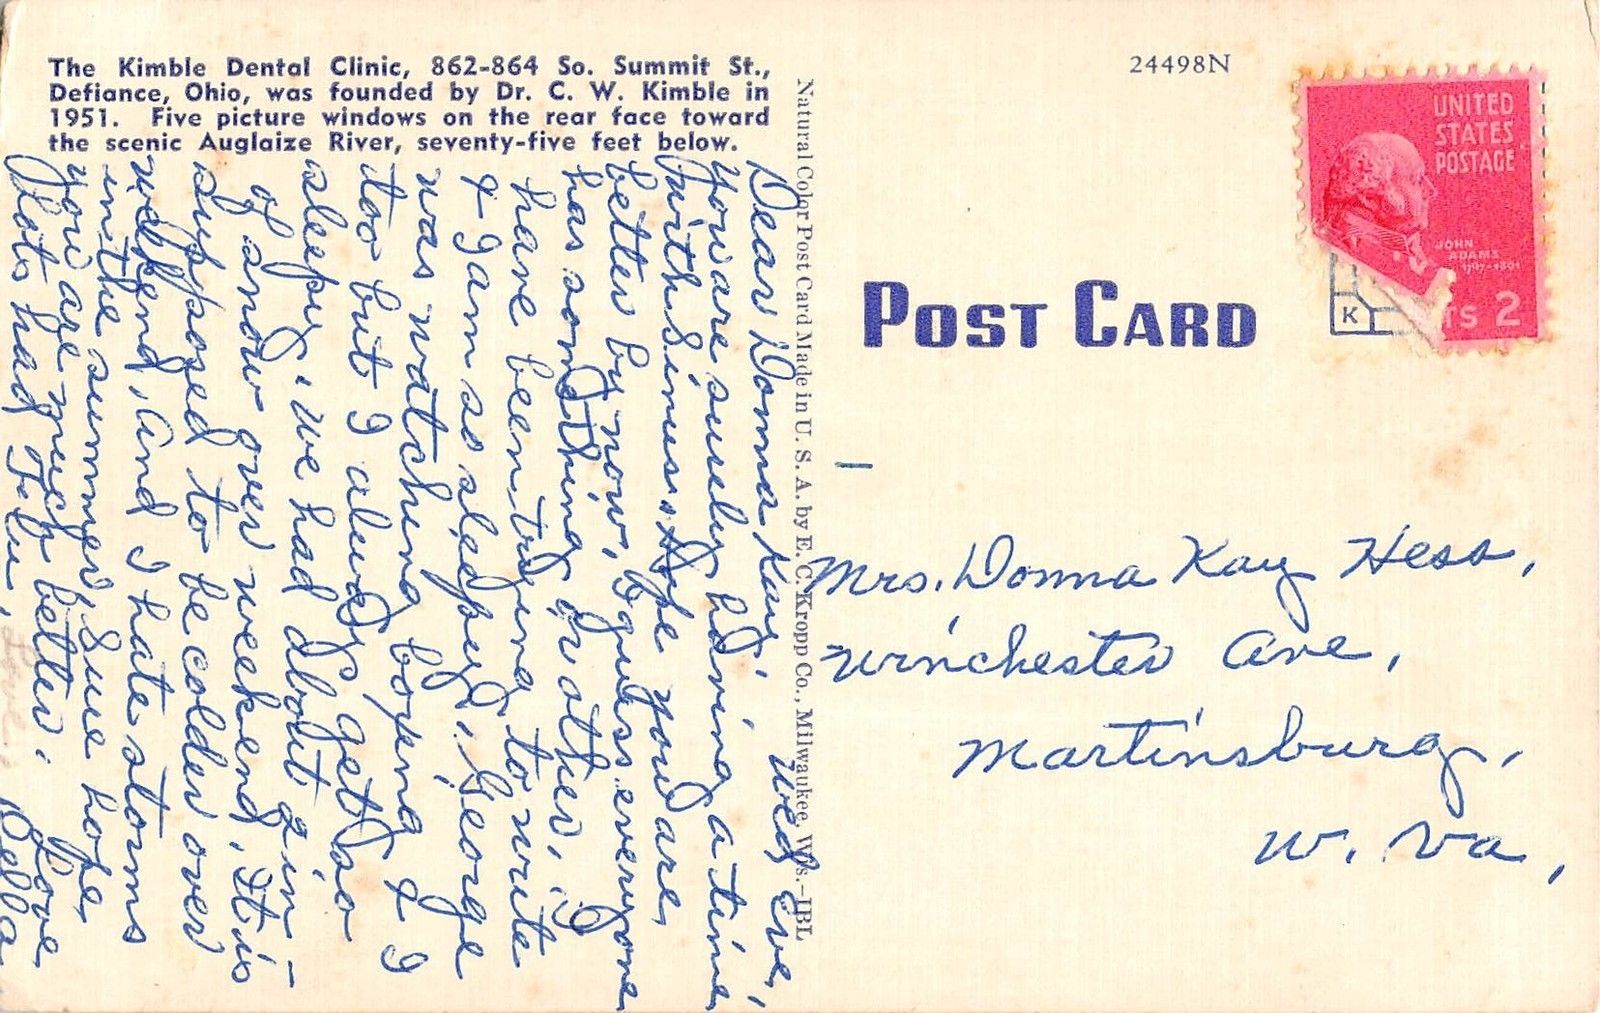 The Kimble Dental Clinic, 862-864 So. Summit St.,
Defiance, Ohio, was founded by Dr. C. W. Kimble in
1951. Five picture windows on the rear face toward
the scenic Auglaize River, seventy-five feet below.
Wed Eve,
Dear Donna Kay,
You are surely having a time
with Sinus. Hope you are
better by now, I guess everyone
has something or other, I
have been trying to write
& I am so sleepy, George
was watching boxing & I
too but I always get so
sleepy. We had about 2 in -
of snow over weekend, It is
supposed to be colder over
weekend, And I hate storms
in the summer, Sure hope
you are much better. Love
Lots had Flu, Bella
Love
Natural Color Post Card Made in U. S. A. by E. C. Kropp Co., Milwaukee, Wis.–IBL
24498N
UNITED
STATES
POSTAGE
JOHN
ADAMS
1797-1801
TS 2
K
POST CARD
Mrs. Donna Kay Hess,
Winchester Ave,
Martinsburg,
W. Va,